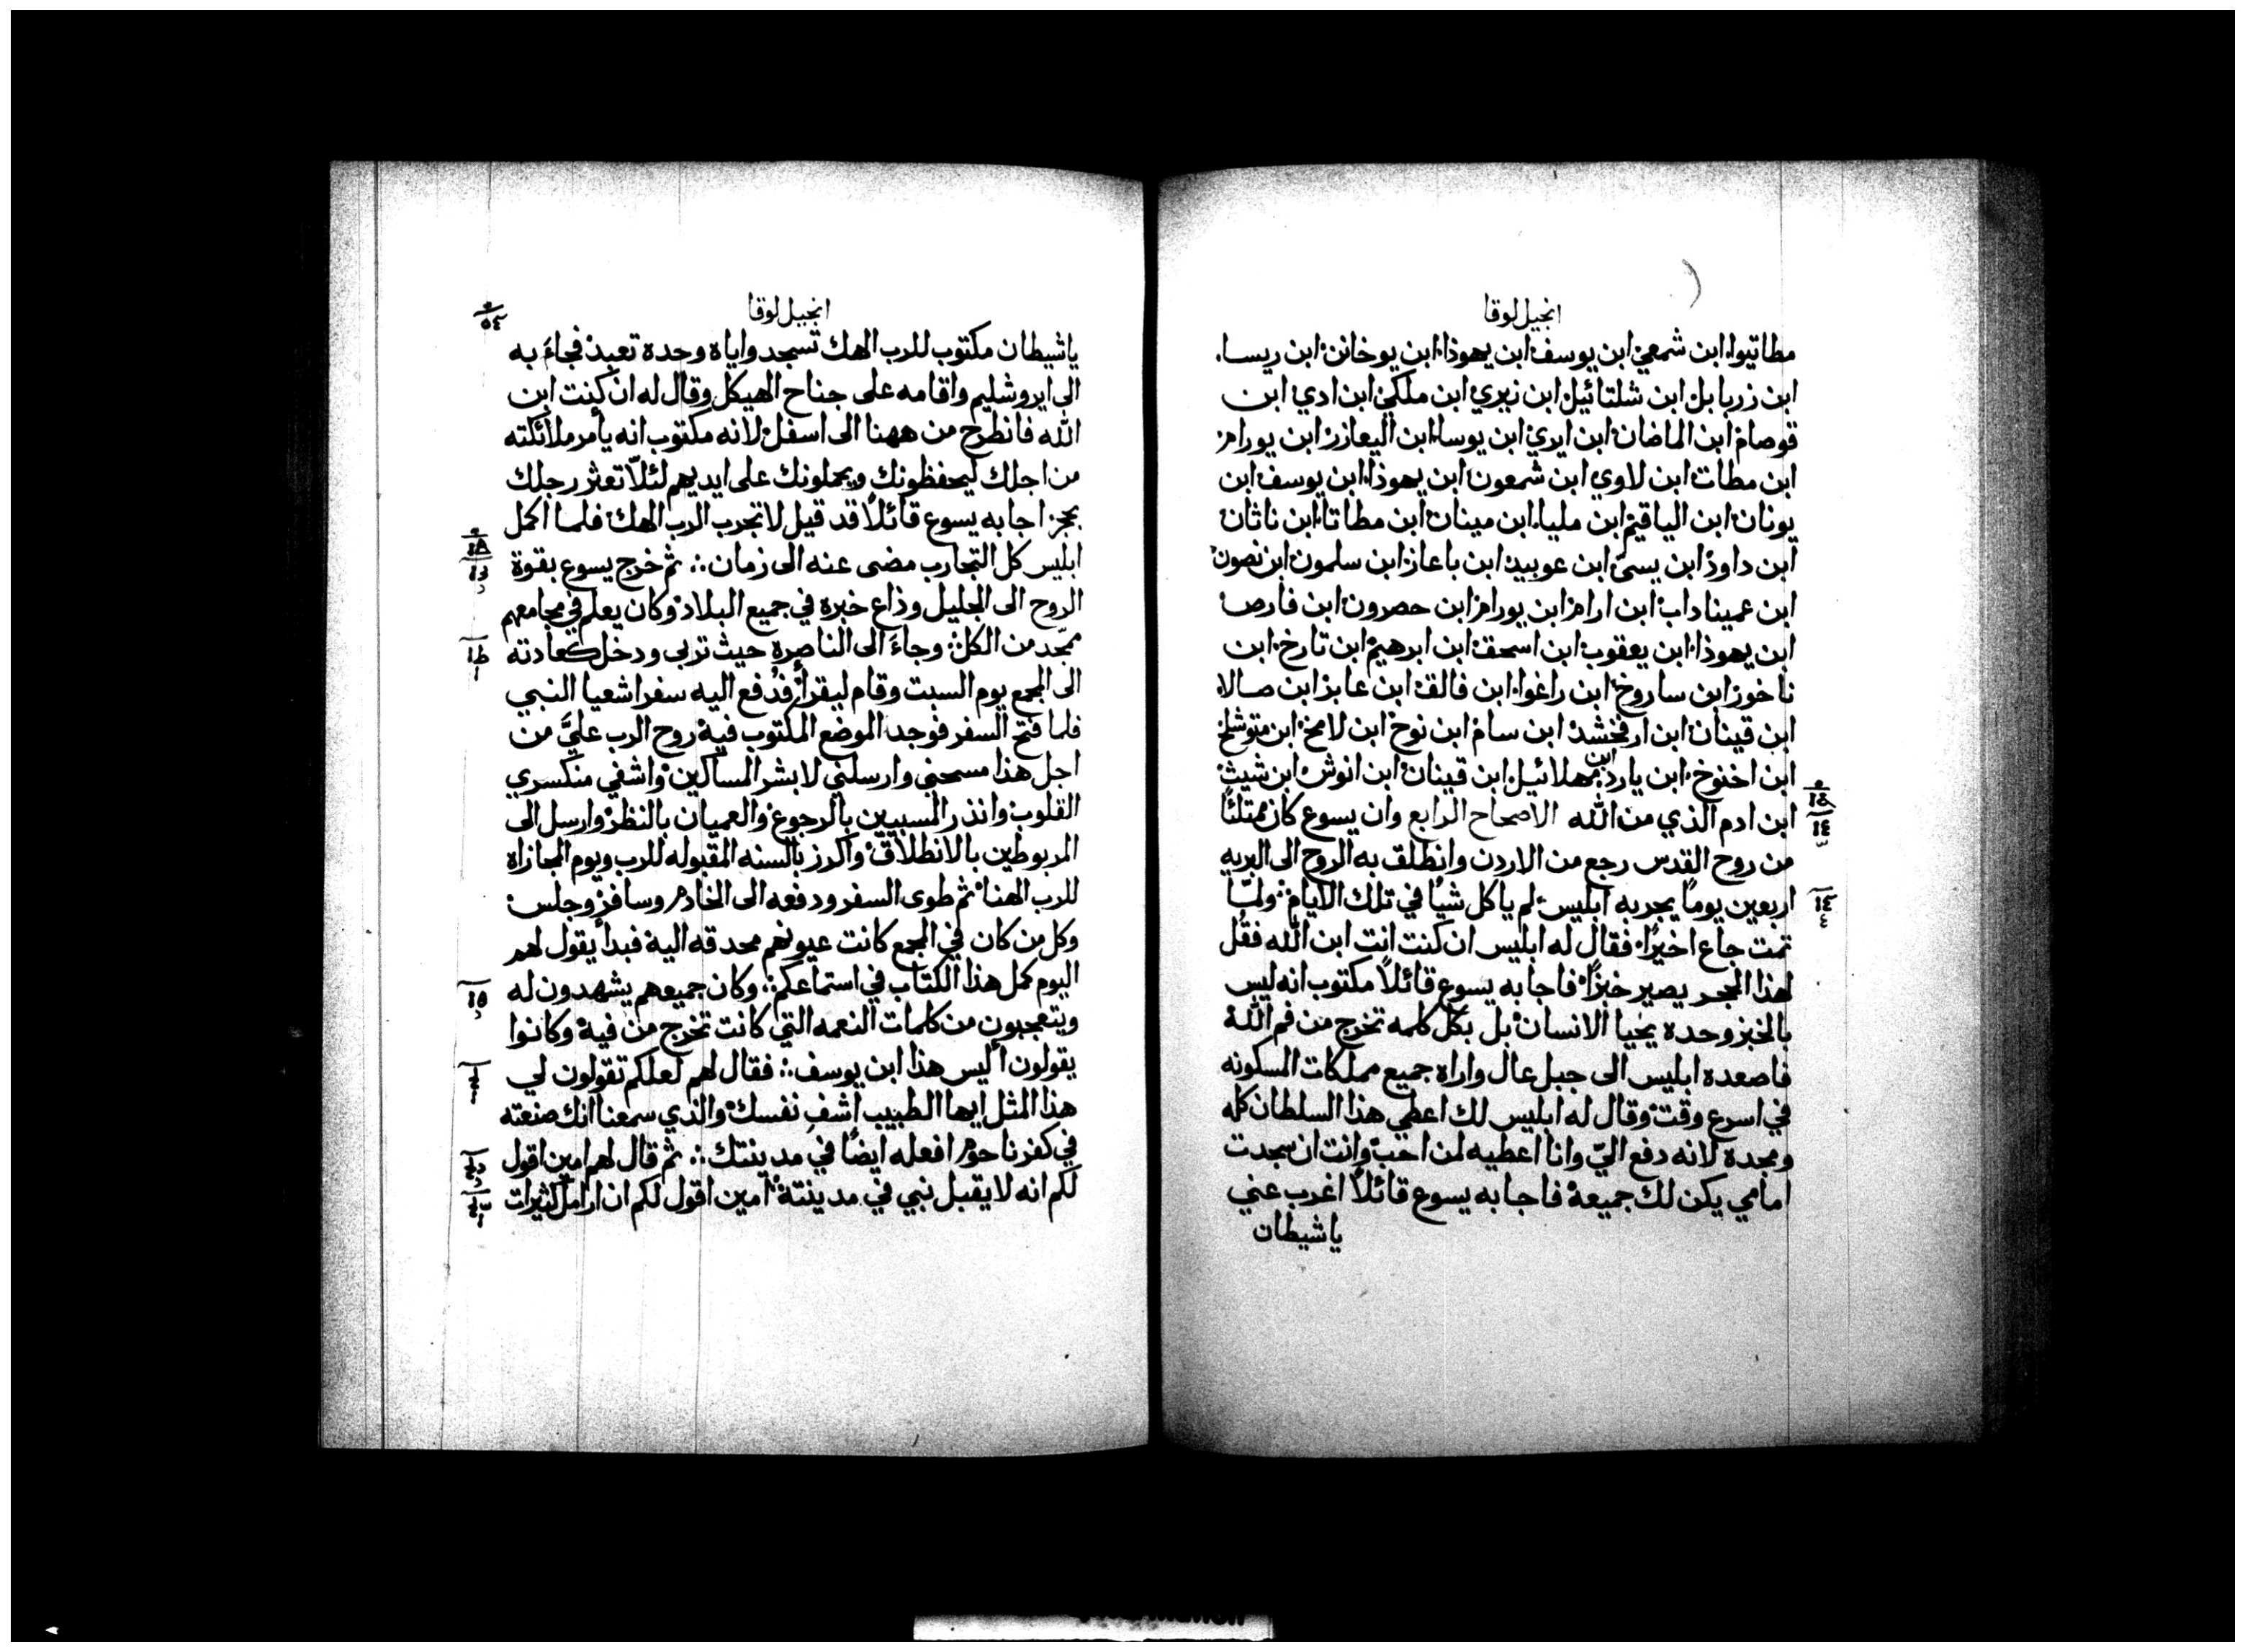 انجيل لوقا
مطاتيوا. ابن شمعي. ابن يوسف. ابن يهوذا. ابن يوخانن. ابن ريسا.
ابن زربابل. ابن شلتائيل. ابن نيري. ابن ملكي. ابن ادي. ابن
قوصام. ابن الماضان. ابن ايري. ابن يوسا. ابن اليعازر. ابن يورام.
ابن مطات. ابن لاوي. ابن شمعون. ابن يهوذا. ابن يوسف. ابن
يونان. ابن الياقيم. ابن مليا. ابن مينان. ابن مطاتا. ابن ناثان.
ابن داود. ابن يسى. ابن عوبيد. ابن باعاز. ابن سلمون. ابن نصون.
ابن عميناداب. ابن ارام. ابن يورام. ابن حصرون. ابن فارص.
ابن يهوذا. ابن يعقوب. ابن اسحق. ابن ابرهيم. ابن تارخ. ابن
ناخور. ابن ساروخ. ابن راغوا. ابن فالق. ابن عابر. ابن صالا.
ابن قينان. ابن ارفخشد. ابن سام. ابن نوح. ابن لامخ. ابن متوشلخ.
ابن اخنوخ. ابن يارد. ابن مهلائيل. ابن قينان. ابن انوش. ابن شيث.
ابن ادم الذي من الله الاصحاح الرابع وان يسوع كان ممتلئًا
من روح القدس رجع من الاردن وانطلق به الروح الى البريه
اربعين يوماً يجربه ابليس. لم ياكل شيًا في تلك الايام. ولمّا
تمت جاع اخيرًا. فقال له ابليس ان كنت انت ابن الله فقُل
لهذا الحجر يصير خبزًا. فاجابه يسوع قائلاً مكتوب انه ليس
بالخبز وحده يحيا الانسان. بل بكل كلمه تخرج من فم الله.
فاصعده ابليس الى جبل عال واراه جميع مملكات المسكونه
في اسرع وقت. وقال له ابليس لك اعطي هذا السلطان كله
ومجده لانه دفع اليّ وانا اعطيه لمن احب. وانت ان سجدت
امامي يكن لك جميعه. فاجابه يسوع قائلاً اغرب عني
ياشيطان
انجيل لوقا
ياشيطان مكتوب للرب الهك تسجد واياه وحده تعبد. فجاءَ به
الى ايروشليم واقامه على جناح الهيكل وقال له ان كنت ابن
الله فانطرح من ههنا الى اسفل. لانه مكتوب انه يأمر ملائكته
من اجلك ليحفظونك ويحملونك على ايديهم لئلاّ تعثر رجلك
بحجر. اجابه يسوع قائلاً قد قيل لا تجرب الرب الهك. فلما اكمل
ابليس كل التجارب مضى عنه الى زمان.: ثم خرج يسوع بقوة
الروح الى الجليل وذاع خبره في جميع البلاد. وكان يعلم في مجامعهم
ممجّد من الكل.: وجاءَ الى الناصرة حيث تربى ودخل كعادته
الى المجمع يوم السبت وقام ليقرأ. فدُفع اليه سفر اشعيا النبي
فلما فتح السفر فوجد الموضع المكتوب فيه. روح الرب عليَّ من
اجل هذا مسحني وارسلني لابشر المساكين. واشفي منكسري
القلوب. وانذر المسبيين بالرجوع. والعميان بالنظر. وارسل الى
المربوطين بالانطلاق. واكرز بالسنه المقبوله للرب ويوم المجازاه
للرب الهنا. ثم طوى السفر ودفعه الى الخادم وسافر. وجلس.
وكل من كان في المجمع كانت عيونهم محدقه اليه. فبدأ يقول لهم
اليوم كمل هذا الكتاب في استماعكم.: وكان جميعهم يشهدون له
ويتعجبون من كلمات النعمه التي كانت تخرج من فيه. وكانوا
يقولون أليس هذا ابن يوسف.: فقال لهم لعلكم تقولون لي
هذا المثل ايها الطبيب اشفِ نفسك. والذي سمعنا انك صنعته
في كفرناحوم افعله ايضًا في مدينتك.: ثم قال لهم امين اقول
لكم انه لا يقبل نبي في مدينته. امين اقول لكم ان ارامل كثيرات